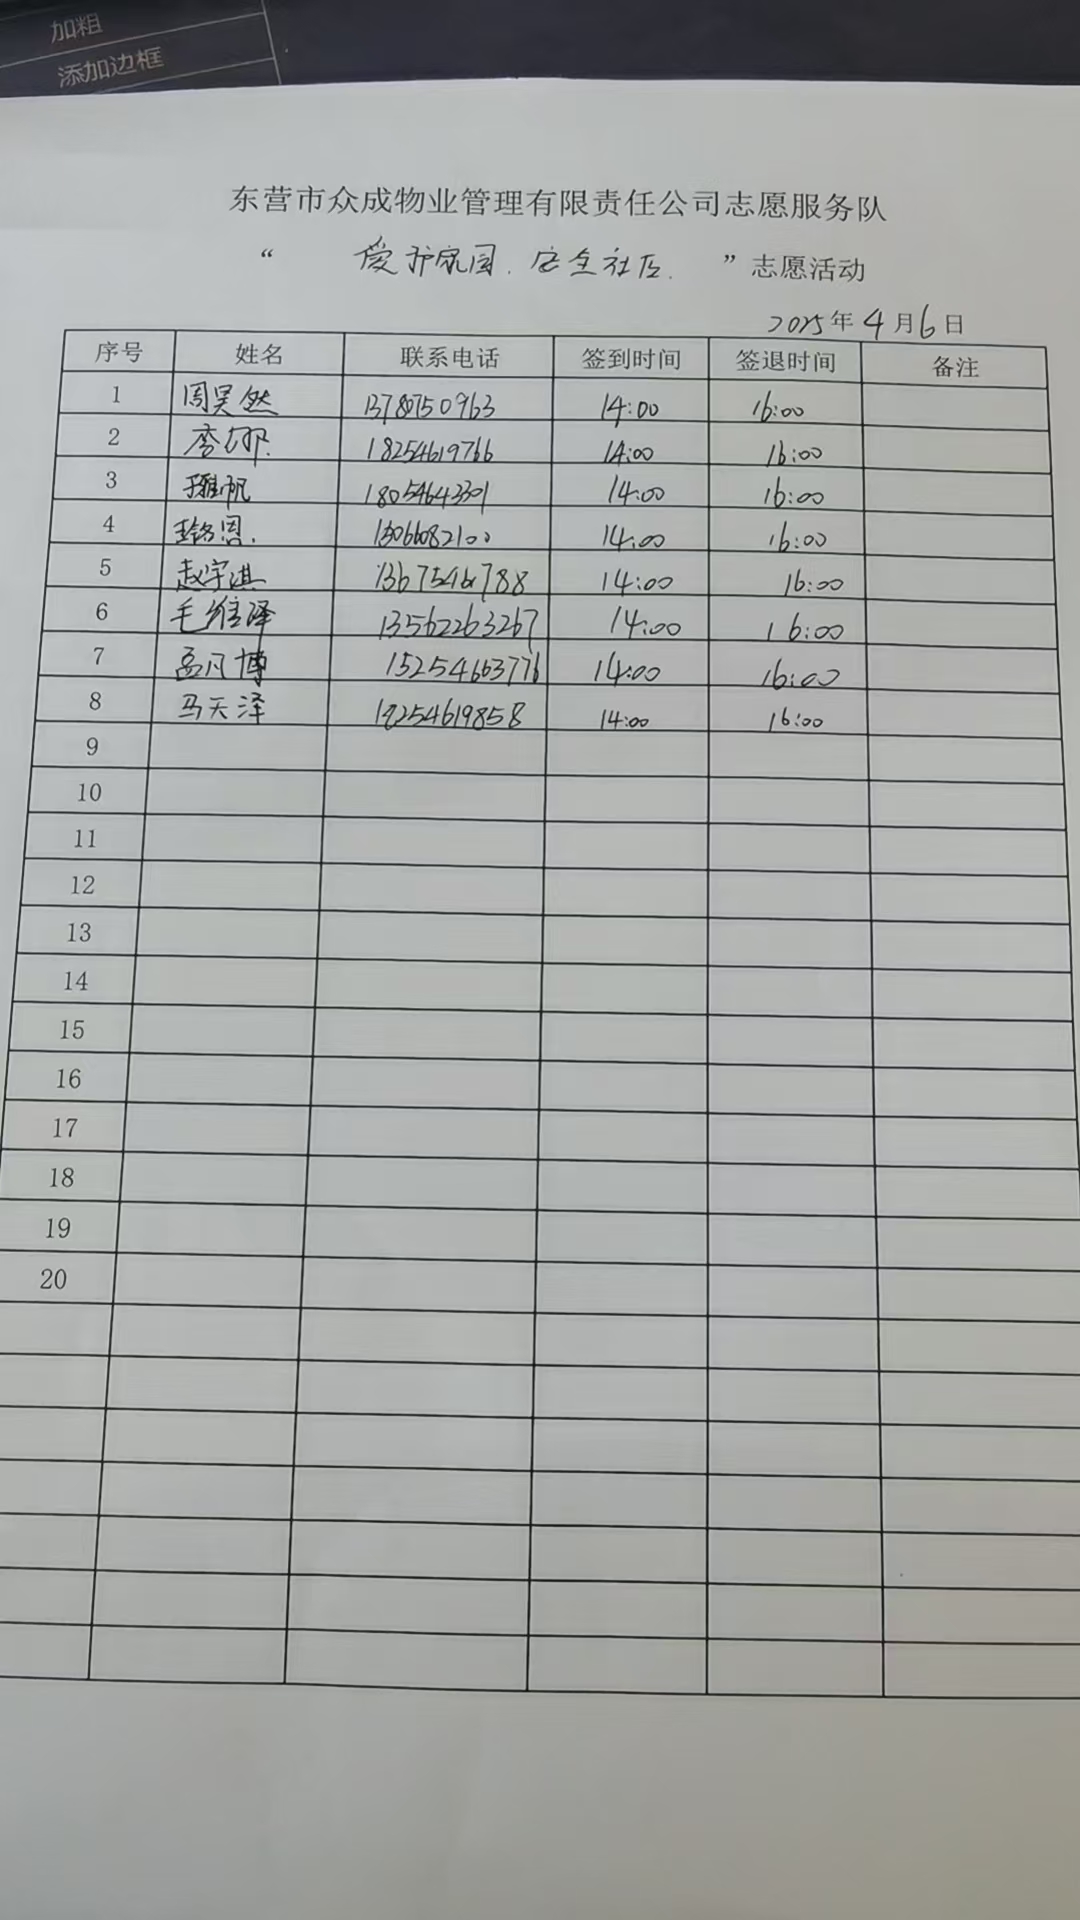 加粗
添加边框
东营市众成物业管理有限责任公司志愿服务队
“ 爱护家园.安全社区. ”志愿活动
2025年4月6日
序号 姓名 联系电话 签到时间 签退时间 备注
1 周昊然 13780750963 14:00 16:00
2 李娜. 18254619766 14:00 16:00
3 18054643301 14:00 16:00
4 14:00 16:00
5 赵宇淇 14:00 16:00
6 毛维泽 13562263267 14:00 16:00
7 孟凡博 15254663776 14:00 16:00
8 马天泽 18254619858 14:00 16:00
9
10
11
12
13
14
15
16
17
18
19
20